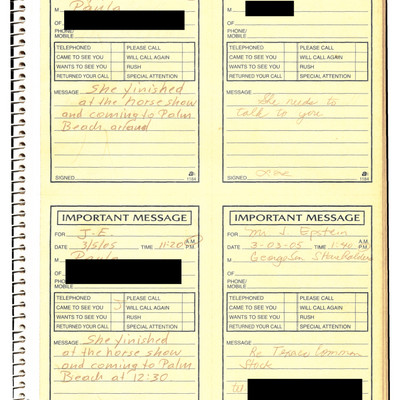 M
Paula
OF
PHONE/
MOBILE
TELEPHONED PLEASE CALL
CAME TO SEE YOU WILL CALL AGAIN
WANTS TO SEE YOU RUSH
RETURNED YOUR CALL SPECIAL ATTENTION
MESSAGE She finished
at the horse show
and coming to Palm
Beach around
SIGNED 1184
M
OF
PHONE/
MOBILE
TELEPHONED PLEASE CALL
CAME TO SEE YOU WILL CALL AGAIN
WANTS TO SEE YOU RUSH
RETURNED YOUR CALL SPECIAL ATTENTION
MESSAGE
She needs to
talk to you
SIGNED 1184
IMPORTANT MESSAGE
FOR J.E.
DATE 3/5/05 TIME 11:20 A.M. P.M.
M Paula
OF
PHONE/
MOBILE
TELEPHONED PLEASE CALL
CAME TO SEE YOU WILL CALL AGAIN
WANTS TO SEE YOU RUSH
RETURNED YOUR CALL SPECIAL ATTENTION
MESSAGE She finished
at the horse show
and coming to Palm
Beach at 12:30
IMPORTANT MESSAGE
FOR Mr. J. Epstein
DATE 3-03-05 TIME 1:40 A.M. P.M.
M Georgeson
OF
PHONE/
MOBILE
TELEPHONED PLEASE CALL
CAME TO SEE YOU WILL CALL AGAIN
WANTS TO SEE YOU RUSH
RETURNED YOUR CALL SPECIAL ATTENTION
MESSAGE
Re Common
Stock